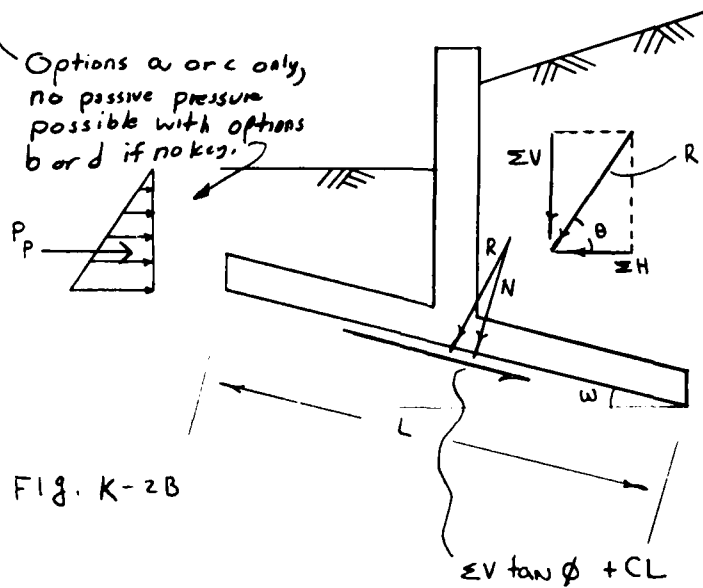 Options a or c only,
no passive pressure
possible with options
b or d if no key.
P_P
ΣV
R
θ
ΣH
R
N
ω
L
FIg. K-2B
ΣV tan φ + CL